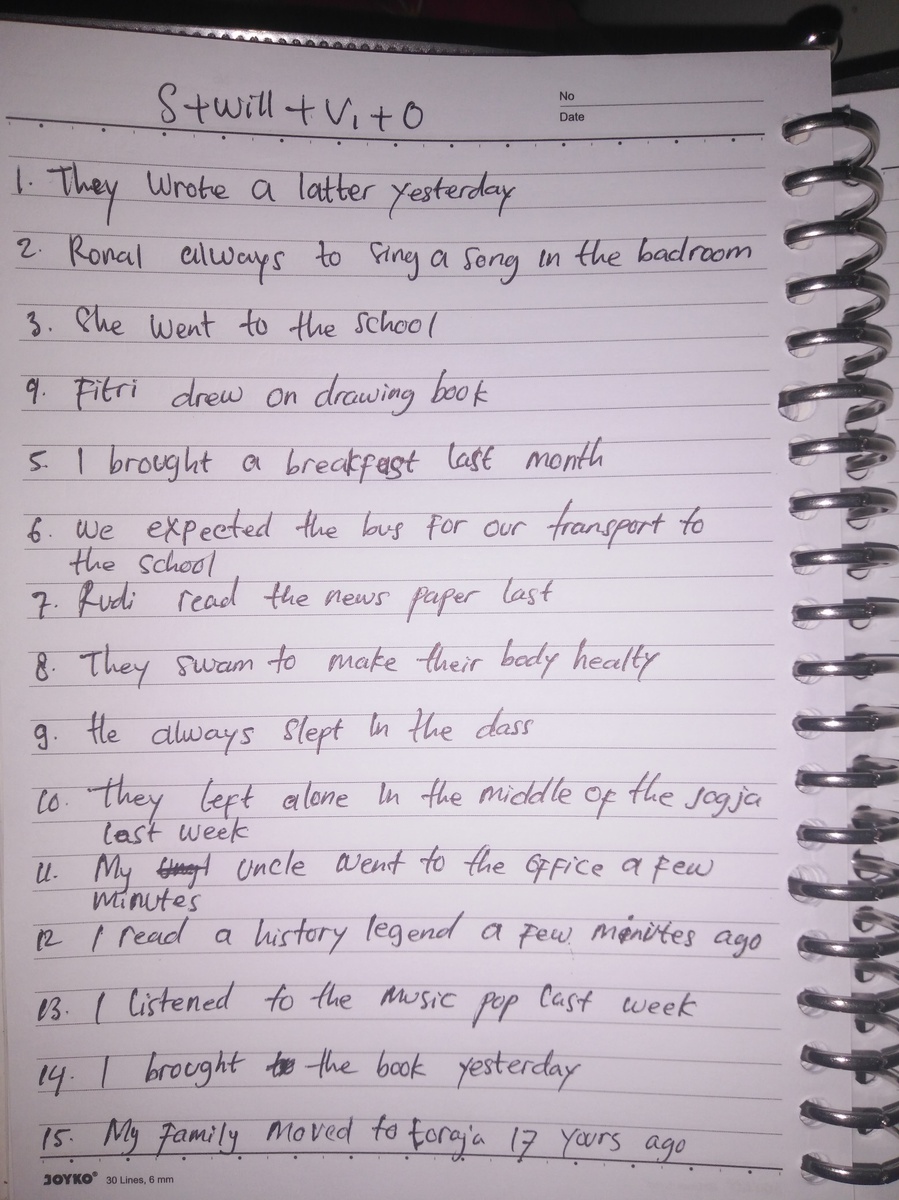 S+will+V1+O
No
Date
1. They Wrote a latter yesterday
2. Ronal always to sing a song in the badroom
3. She went to the school
4. Fitri drew on drawing book
5. I brought a breakfast last month
6. We expected the bus for our transport to
the school
7. Rudi read the news paper last
8. They swam to make their body healty
9. He always slept in the class
10. they left alone in the middle of the Jogja
last week
11. My uncle went to the office a few
minutes
12 I read a history legend a few minites ago
13. I listened to the music pop last week
14. I brought the book yesterday
15. My family moved to toraja 17 yours ago
JOYKO® 30 Lines, 6 mm